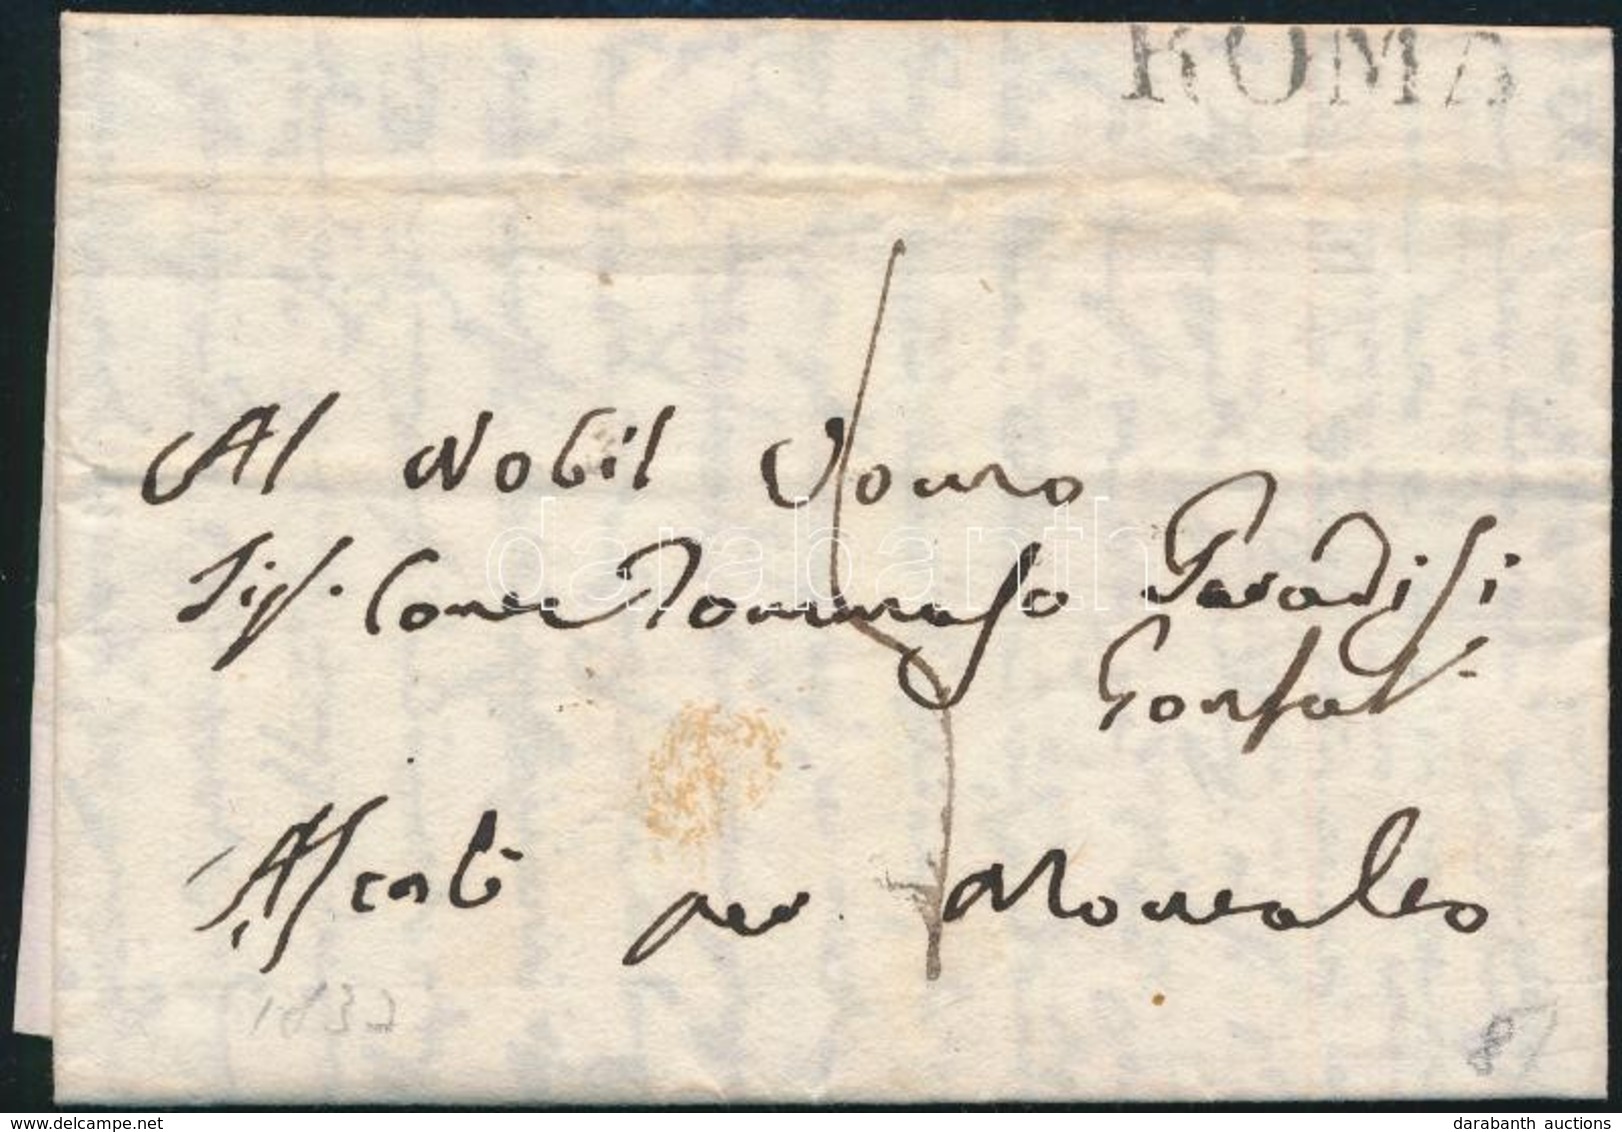 ROMA
Al Nobil Uomo
Sig. Conte Tommaso Paradisi
Gonfal.
Ascoli per Montalto
1837
87
darabanth
www.delcampe.net
darabanth auctions